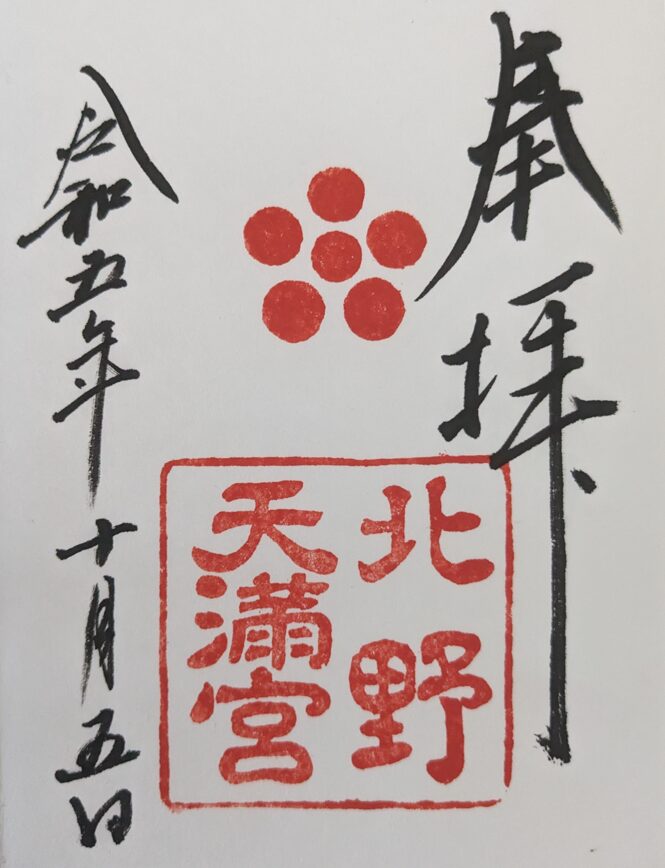 奉拝
北野
天満宮
令和五年十月五日